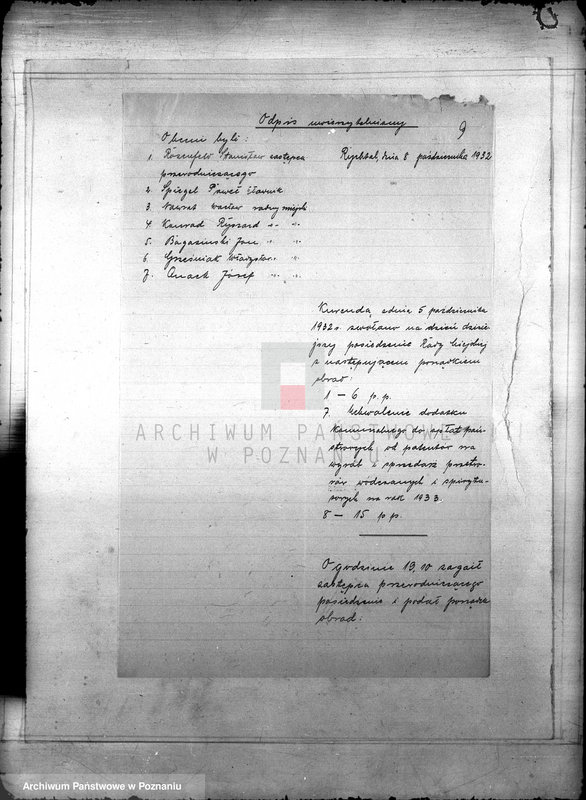 Odpis uwierzytelniony
9
Obecni byli:
Rychtal, dnia 8 października 1932
1. Rosenfeld Stanisław zastępca
przewodniczącego
2. Spiegel Paweł ławnik
3. Nawrot Wacław radny miejski
4. Konrad Ryszard " "
5. Bagasiński Jan " "
6. Grześniak Władysław " "
7. Józef " "
Kurendą z dnia 5 października
1932 r. zwołano na dzień dzisiej-
szy posiedzenie Rady Miejskiej
z następującem porządkiem
obrad
1 – 6 p. p.
7. Uchwalenie dodatku
komunalnego do opłat pań-
stwowych od patentów na
wyrób i sprzedaż przetwo-
rów wódczanych i spirytu-
sowych na rok 1933.
8 – 15 p. p.
O godzinie 19,10 zagaił
zastępca przewodniczącego
posiedzenie i podał porządek
obrad:
ARCHIWUM PAŃSTWOWE
W POZNANIU
Archiwum Państwowe w Poznaniu